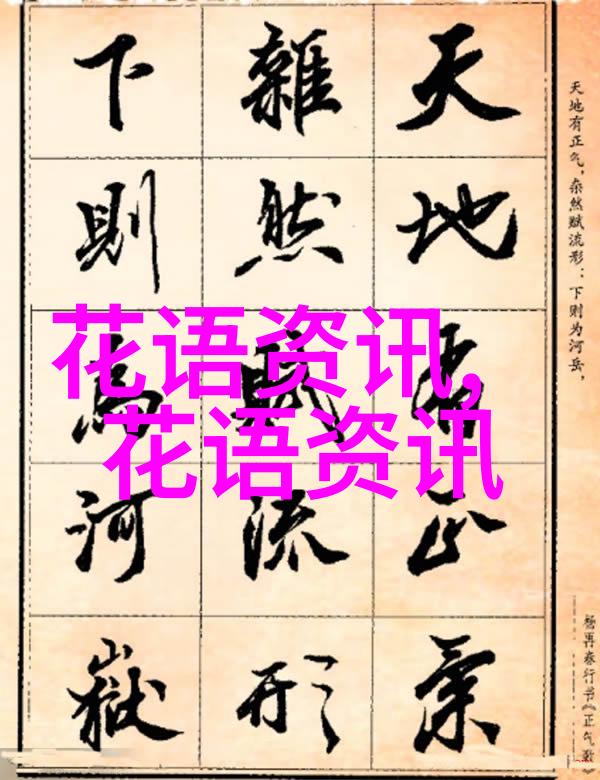 天地有正气，杂然赋流形：下则为河岳，
天地有正氣
雜然賦流形
下則為河嶽
花语资讯,
花语资讯
杨再春行书《正气歌》